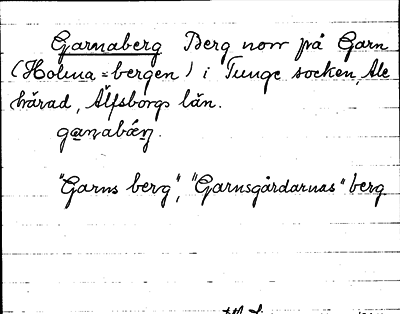 Garnaberg Berg norr på Garn
(Holma=bergen) i Tunge socken, Ale
härad, Älfsborgs län.
ga̲nabǽŋ.
"Garns berg", "Garnsgårdarnas" berg